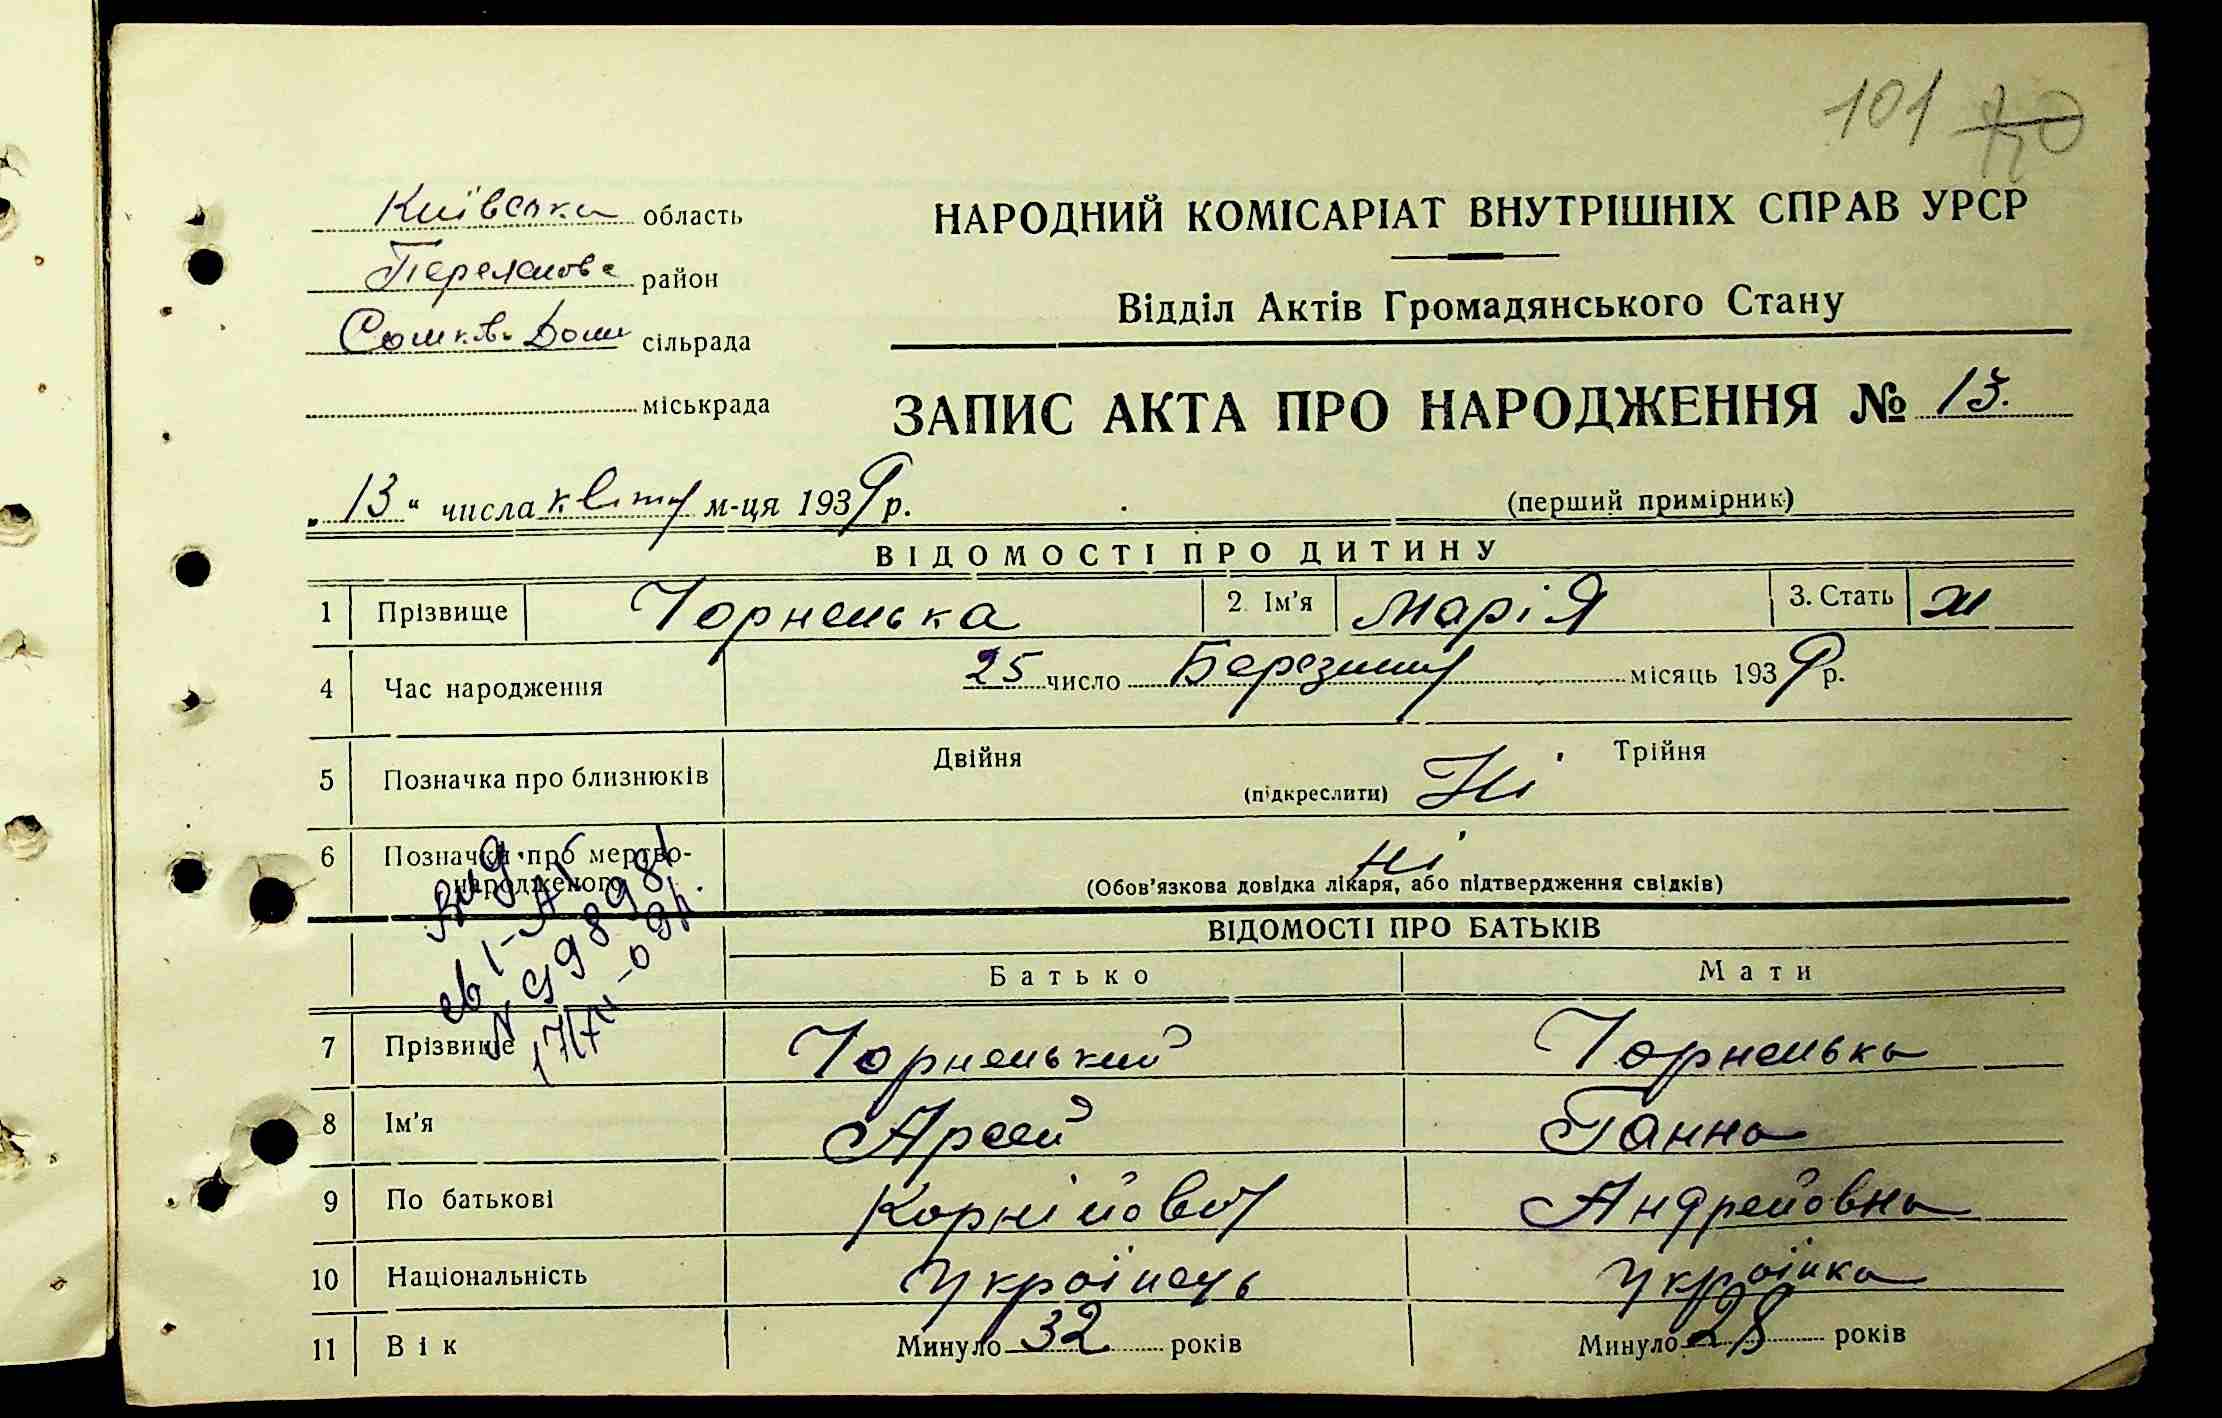 101 70
Київська область
район
сільрада
міськрада
НАРОДНИЙ КОМІСАРІАТ ВНУТРІШНІХ СПРАВ УРСР
Відділ Актів Громадянського Стану
ЗАПИС АКТА ПРО НАРОДЖЕННЯ № 13.
„13“ числа квітн м-ця 1939 р.
(перший примірник)
ВІДОМОСТІ ПРО ДИТИНУ
1 Прізвище Чорненька 2. Ім'я Марія 3. Стать ж
4 Час народження 25 число Березня місяць 1939 р.
5 Позначка про близнюків Двійня (підкреслити) Ні Трійня
6 Позначка про мертво-
народженого ні
(Обов'язкова довідка лікаря, або підтвердження свідків)
ВІДОМОСТІ ПРО БАТЬКІВ
Батько Мати
7 Прізвище Чорненький Чорненька
8 Ім'я Арсей Ганна
9 По батькові Корнійович Андрейовна
10 Національність Українець Українка
11 Вік Минуло 32 років Минуло 28 років